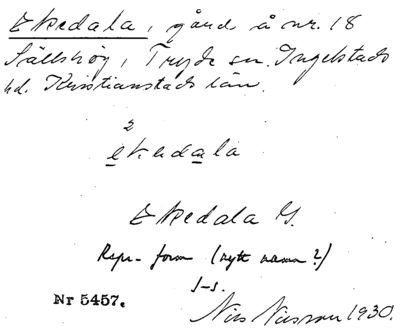 Ekedala, gård å nr. 18
Sällshög, Tryde sn. Ingelstads
hd. Kristianstads län.
2
ekedala
Ekedala G.
Repr.-form (nytt namn?)
J-s.
Nr 5457.
Nils Nilsson 1930.